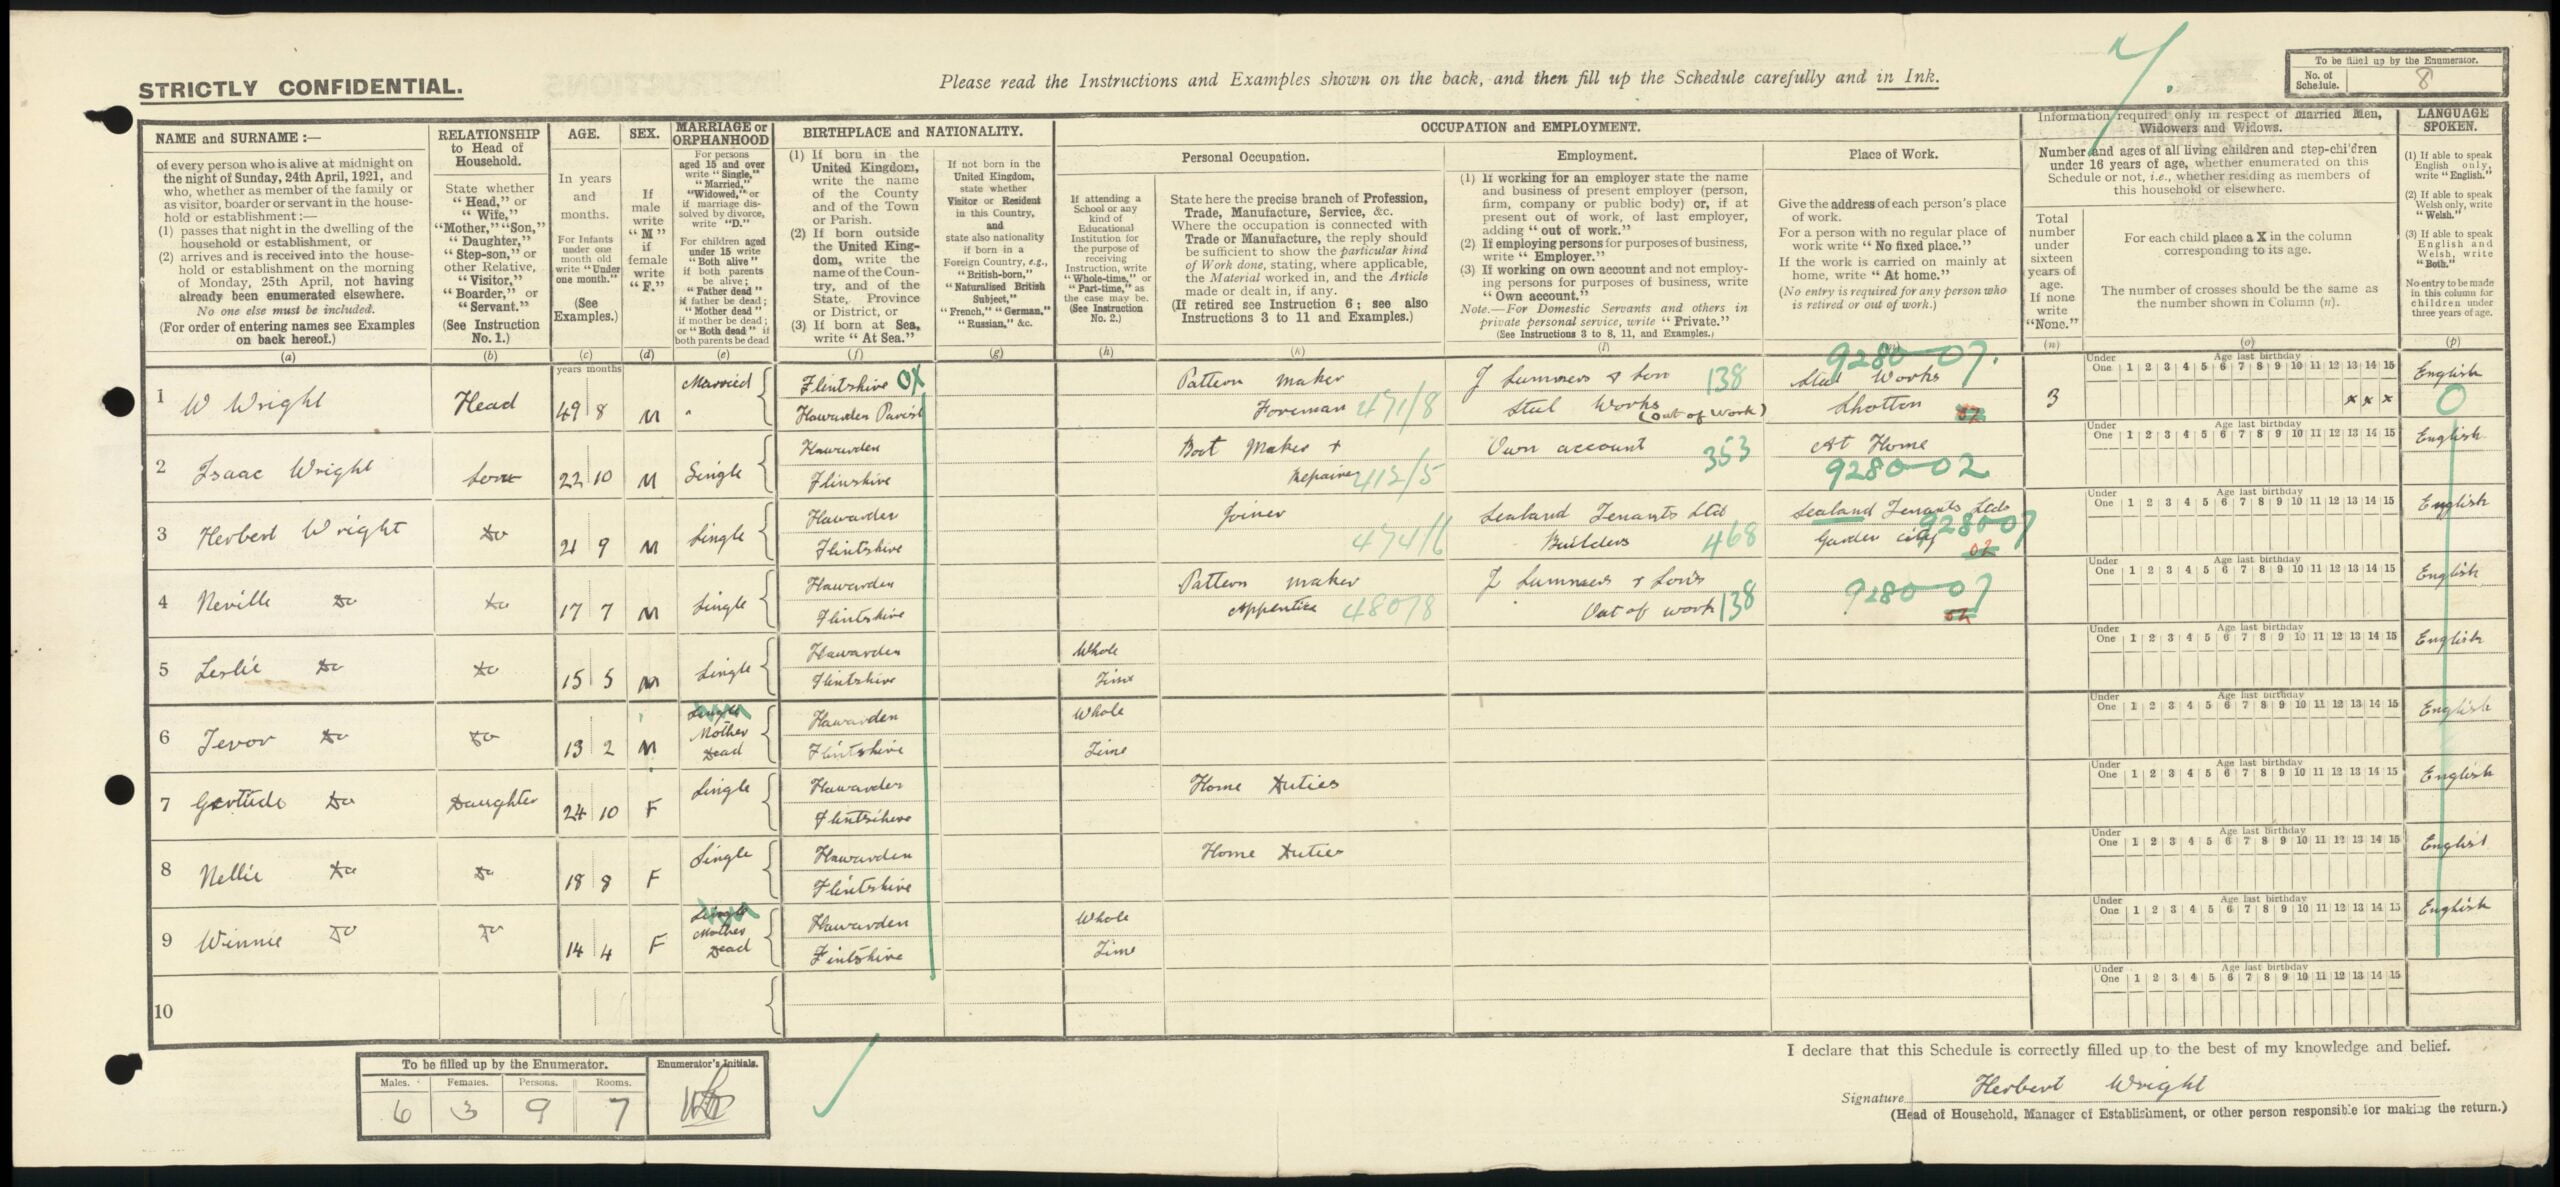 STRICTLY CONFIDENTIAL.
Please read the Instructions and Examples shown on the back, and then fill up the Schedule carefully and in Ink.
7.
To be filled up by the Enumerator.
No. of Schedule. 8
NAME and SURNAME :—
of every person who is alive at midnight on
the night of Sunday, 24th April, 1921, and
who, whether as member of the family or
as visitor, boarder or servant in the house-
hold or establishment :—
(1) passes that night in the dwelling of the
household or establishment, or
(2) arrives and is received into the house-
hold or establishment on the morning
of Monday, 25th April, not having
already been enumerated elsewhere.
No one else must be included.
(For order of entering names see Examples
on back hereof.)
(a)
RELATIONSHIP
to Head of
Household.
State whether
"Head," or
"Wife,"
"Mother," "Son,"
"Daughter,"
"Step-son," or
other Relative,
"Visitor,"
"Boarder," or
"Servant."
(See Instruction
No. 1.)
(b)
AGE.
In years
and
months.
For Infants
under one
month old
write "Under
one month."
(See
Examples.)
(c)
SEX.
If
male
write
"M"
if
female
write
"F."
(d)
MARRIAGE or
ORPHANHOOD
For persons
aged 15 and over
write "Single,"
"Married,"
"Widowed," or
if marriage dis-
solved by divorce,
write "D."
For children aged
under 15 write
"Both alive"
if both parents
be alive;
"Father dead"
if father be dead;
"Mother dead"
if mother be dead;
or "Both dead" if
both parents be dead
(e)
BIRTHPLACE and NATIONALITY.
(1) If born in the
United Kingdom,
write the name
of the County
and of the Town
or Parish.
(2) If born outside
the United King-
dom, write the
name of the Coun-
try, and of the
State, Province
or District, or
(3) If born at Sea,
write "At Sea."
(f)
If not born in the
United Kingdom,
state whether
Visitor or Resident
in this Country,
and
state also nationality
if born in a
Foreign Country, e.g.,
"British-born,"
"Naturalised British
Subject,"
"French," "German,"
"Russian," &c.
(g)
OCCUPATION and EMPLOYMENT.
Personal Occupation.
If attending a
School or any
kind of
Educational
Institution for
the purpose of
receiving
Instruction, write
"Whole-time," or
"Part-time," as
the case may be.
(See Instruction
No. 2.)
(h)
State here the precise branch of Profession,
Trade, Manufacture, Service, &c.
Where the occupation is connected with
Trade or Manufacture, the reply should
be sufficient to show the particular kind
of Work done, stating, where applicable,
the Material worked in, and the Article
made or dealt in, if any.
(If retired see Instruction 6; see also
Instructions 3 to 11 and Examples.)
(k)
Employment.
(1) If working for an employer state the name
and business of present employer (person,
firm, company or public body) or, if at
present out of work, of last employer,
adding "out of work."
(2) If employing persons for purposes of business,
write "Employer."
(3) If working on own account and not employ-
ing persons for purposes of business, write
"Own account."
Note.—For Domestic Servants and others in
private personal service, write "Private."
(See Instructions 3 to 8, 11, and Examples.)
(l)
Place of Work.
Give the address of each person's place
of work.
For a person with no regular place of
work write "No fixed place."
If the work is carried on mainly at
home, write "At home."
(No entry is required for any person who
is retired or out of work.)
Information required only in respect of Married Men,
Widowers and Widows.
Number and ages of all living children and step-children
under 16 years of age, whether enumerated on this
Schedule or not, i.e., whether residing as members of
this household or elsewhere.
Total
number
under
sixteen
years of
age.
If none
write
"None."
(n)
For each child place a X in the column
corresponding to its age.
The number of crosses should be the same as
the number shown in Column (n).
(o)
LANGUAGE
SPOKEN.
(1) If able to speak
English only,
write "English."
(2) If able to speak
Welsh only, write
"Welsh."
(3) If able to speak
English and
Welsh, write
"Both."
No entry to be made
in this column for
children under
three years of age.
(p)
years months
Age last birthday
Under One 1 2 3 4 5 6 7 8 9 10 11 12 13 14 15
1 W Wright Head 49 8 M Married " Flintshire OX Hawarden Parish
Pattern Maker Foreman 471/8
J Summers & Son 138 Steel Works (Out of Work)
9280-07. Steel Works Shotton 02
3 x x x English 0
Age last birthday
Under One 1 2 3 4 5 6 7 8 9 10 11 12 13 14 15
2 Isaac Wright Son 22 10 M Single Hawarden Flinshire
Boot Maker & Repairer 412/5
Own account 353
At Home 9280-02
English
Age last birthday
Under One 1 2 3 4 5 6 7 8 9 10 11 12 13 14 15
3 Herbert Wright Do 21 9 M Single Hawarden Flintshire
Joiner 474/6
Sealand Tenants Ltd Builders 468
Sealand Tenants Ltd 9280-07 Garden City 02
English
Age last birthday
Under One 1 2 3 4 5 6 7 8 9 10 11 12 13 14 15
4 Neville Do Do 17 7 M Single Hawarden Flintshire
Pattern Maker Apprentice 480/8
J Summers & Sons Out of work 138
9280-07 02
English
Age last birthday
Under One 1 2 3 4 5 6 7 8 9 10 11 12 13 14 15
5 Leslie Do Do 15 5 M Single Hawarden Flintshire Whole Time English
Age last birthday
Under One 1 2 3 4 5 6 7 8 9 10 11 12 13 14 15
6 Tevor Do Do 13 2 M Single Mother Dead Hawarden Flintshire Whole Time English
Age last birthday
Under One 1 2 3 4 5 6 7 8 9 10 11 12 13 14 15
7 Gertude Do Daughter 24 10 F Single Hawarden Flintshire Home Duties English
Age last birthday
Under One 1 2 3 4 5 6 7 8 9 10 11 12 13 14 15
8 Nellie Do Do 18 8 F Single Hawarden Flintshire Home Duties English
Age last birthday
Under One 1 2 3 4 5 6 7 8 9 10 11 12 13 14 15
9 Winnie Do Do 14 4 F Single Mother Dead Hawarden Fintshire Whole Time English
Age last birthday
Under One 1 2 3 4 5 6 7 8 9 10 11 12 13 14 15
10
To be filled up by the Enumerator.
Males. Females. Persons. Rooms.
6 3 9 7
Enumerator's Initials.
I declare that this Schedule is correctly filled up to the best of my knowledge and belief.
Signature Herbert Wright
(Head of Household, Manager of Establishment, or other person responsible for making the return.)